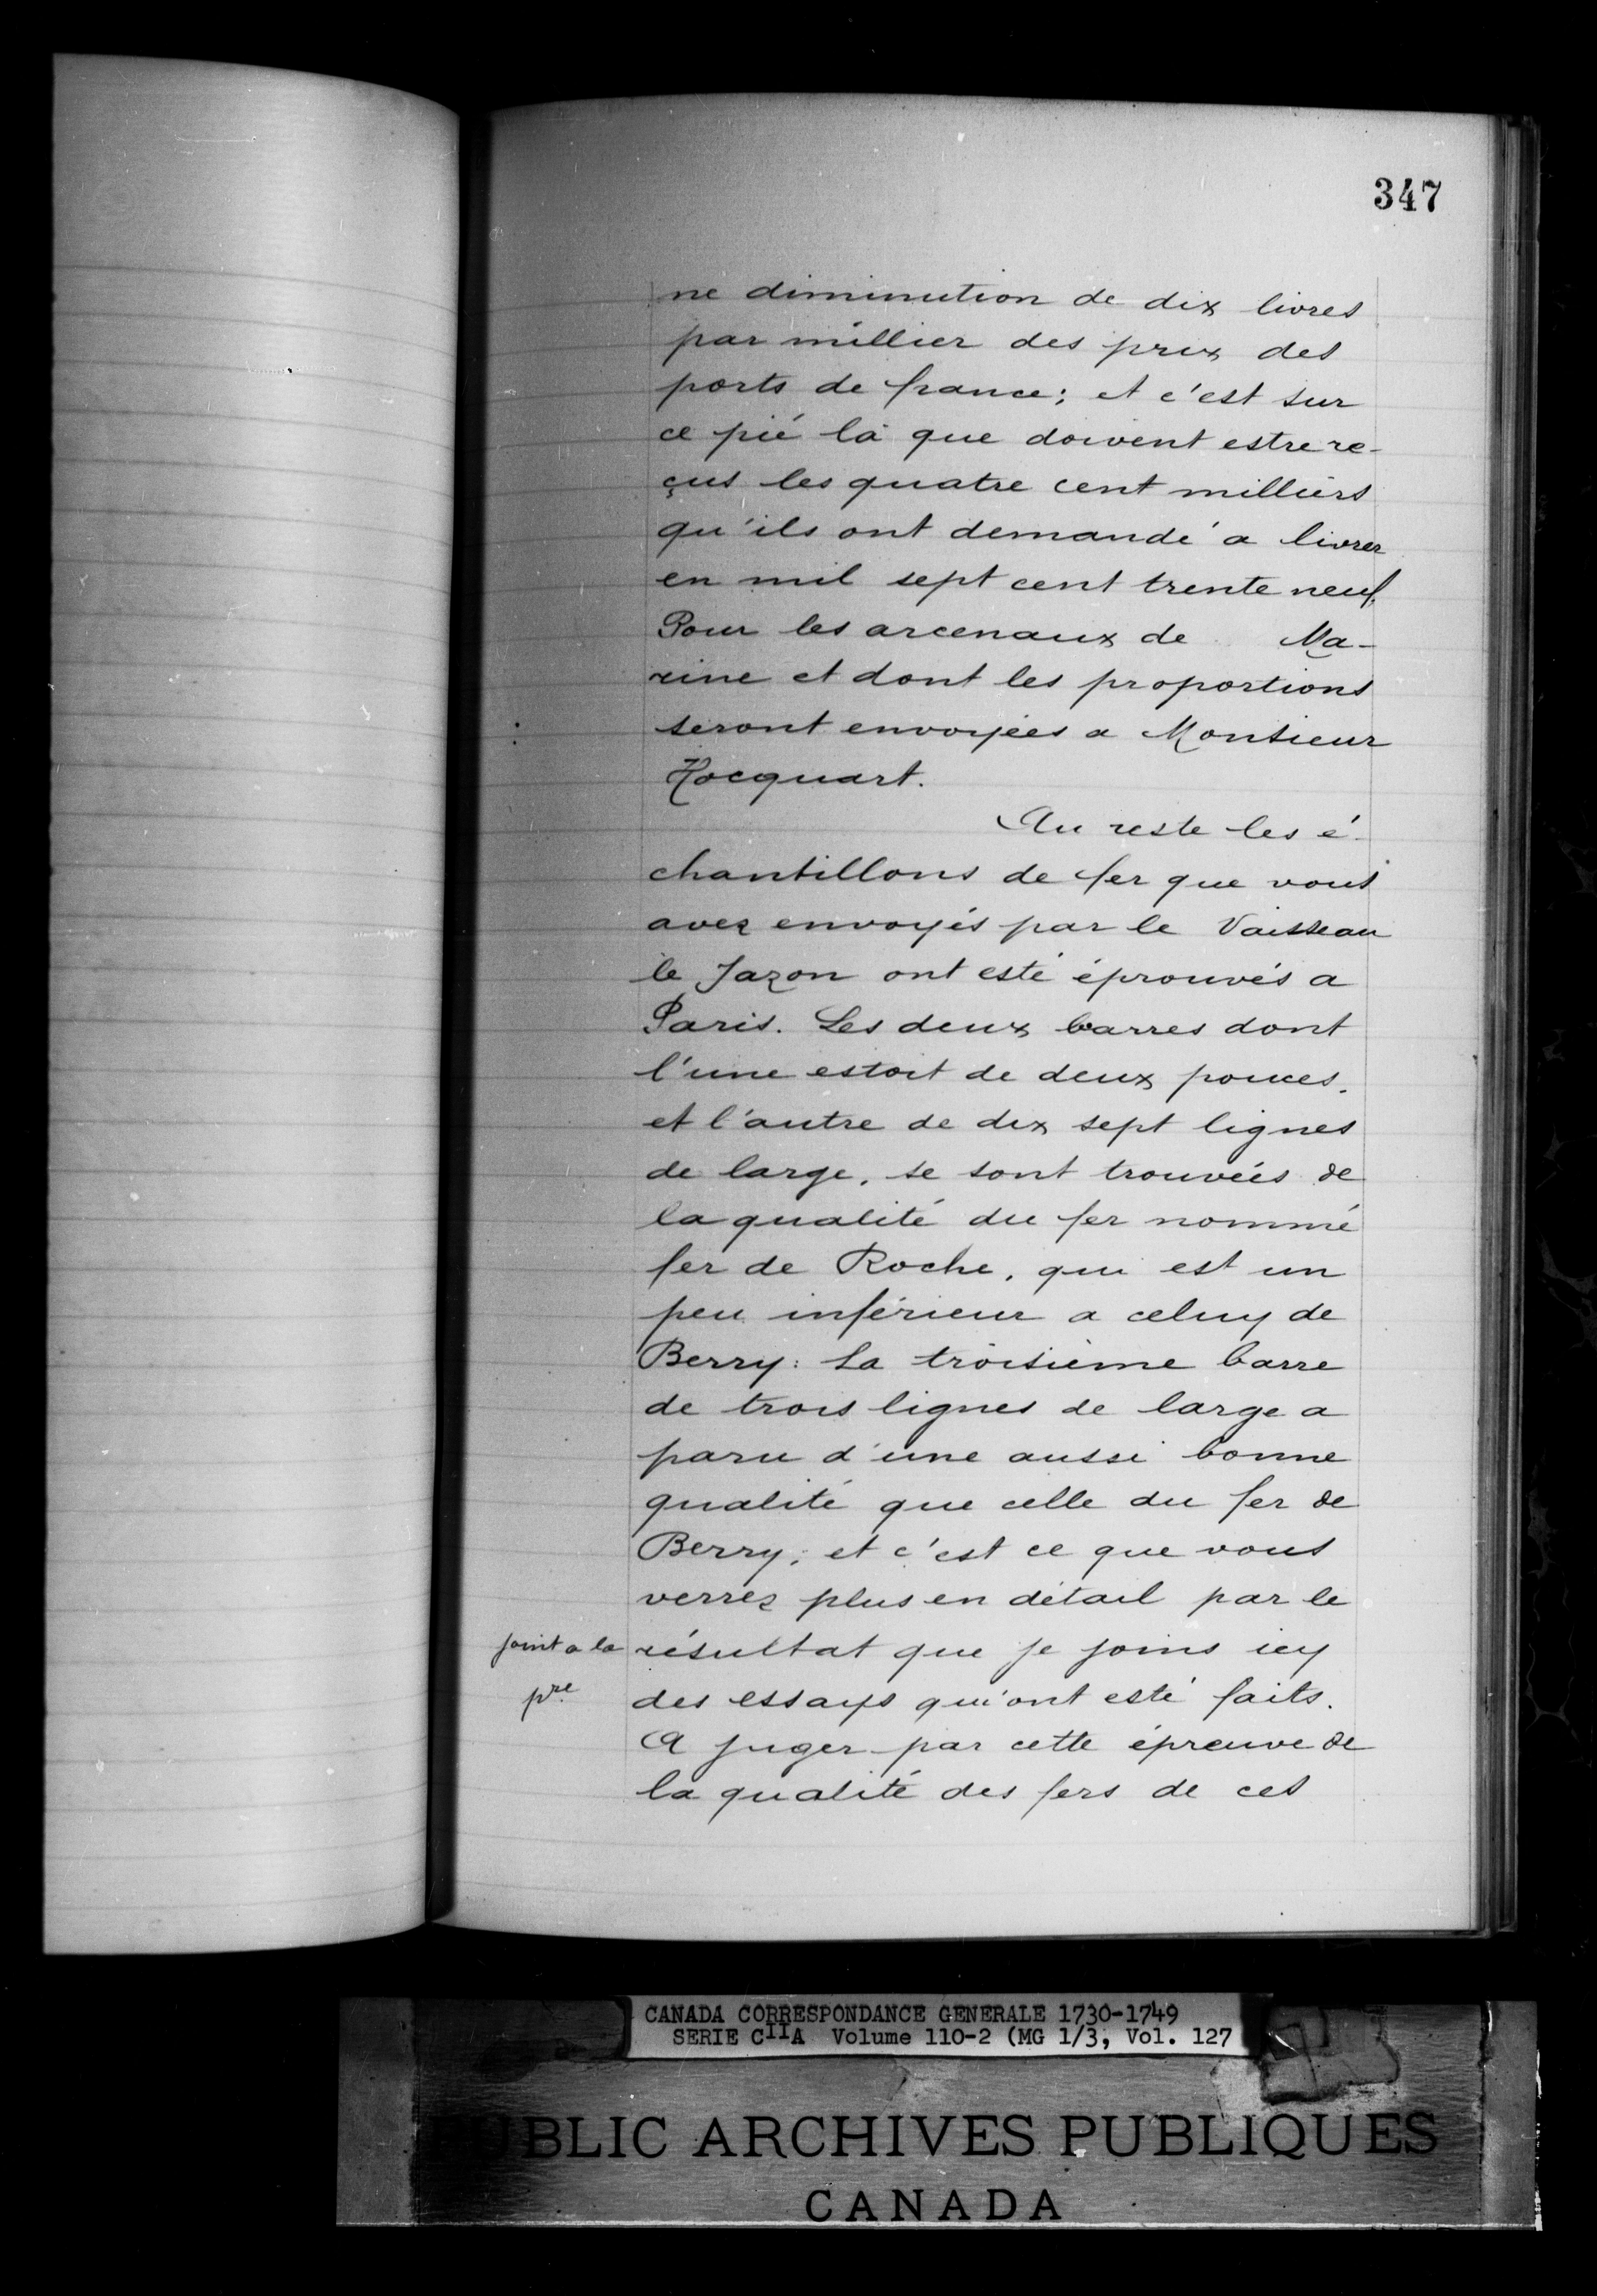 347
ne diminution de dix livres
par millier des prix des
ports de france; et c'est sur
ce pié là que doivent estre re-
çus les quatre cent milliers
qu'ils ont demandé a livrer
en mil sept cent trente neuf.
Pour les arcenaux de Ma-
rine et dont les proportions
seront envoyées a Monsieur
Hocquart.
Au reste les é-
chantillons de fer que vous
avez envoyés par le Vaisseau
le Jazon ont esté éprouvés a
Paris. Les deux barres dont
l'une estoit de deux pouces.
et l'autre de dix sept lignes
de large, se sont trouvées de
la qualité du fer nommé
fer de Roche, qui est un
peu inférieur a celuy de
Berry: La troisième barre
de trois lignes de large a
paru d'une aussi bonne
qualité que celle du fer de
Berry; et c'est ce que vous
verrez plus en détail par le
joint a la résultat que je joins icy
pre des essays qui'ont esté faits.
A juger par cette épreuve de
la qualité des fers de ces
CANADA CORRESPONDANCE GENERALE 1730-1749
SERIE CIIA Volume 110-2 (MG 1/3, Vol. 127
PUBLIC ARCHIVES PUBLIQUES
CANADA